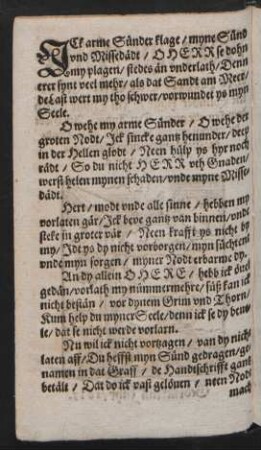 ICk arme Sünder klage / myne Sünd
vnd Missedädt / O HERR se dohn
my plagen / stedes än vnderlath / Denn
erer synt veel mehr / als dat Sandt am Meer /
de Last wert my tho schwer / vorwundet ys myn
Seele.
O wehe my arme Sünder / O wehe der
groten Nodt / Ick sincke gantz henunder / deep
in der Hellen glodt / Neen hülp ys hyr noch
rädt / So du nicht HERR vth Gnaden /
werst helen mynen schaden / vnde myne Misse-
dädt.
Hert / modt vnde alle sinne / hebben my
vorlaten gär / Ick beve gantz van binnen / vnde
steke in groter vär / Neen krafft ys nicht by
my / Idt ys dy nicht vorborgen / myn süchtent
vnde myn sorgen / myner Nodt erbarme dy.
An dy allein O HERE / hebb ick övel
gedän / vorlath my nümmermehre / süß kan ick
nicht bestän / vor dynem Grim vnd Thorn /
Kum help du myner Seele / denn ick se dy beve-
le / dat se nicht werde vorlarn.
Nu wil ick nicht vortzagen / van dy nicht
laten aff / Du heffst myn Sünd gedragen / ge-
namen in dat Graff / de Handtschrifft gantz
betält / Dat do ick vast gelöuen / neen Nodt
mach